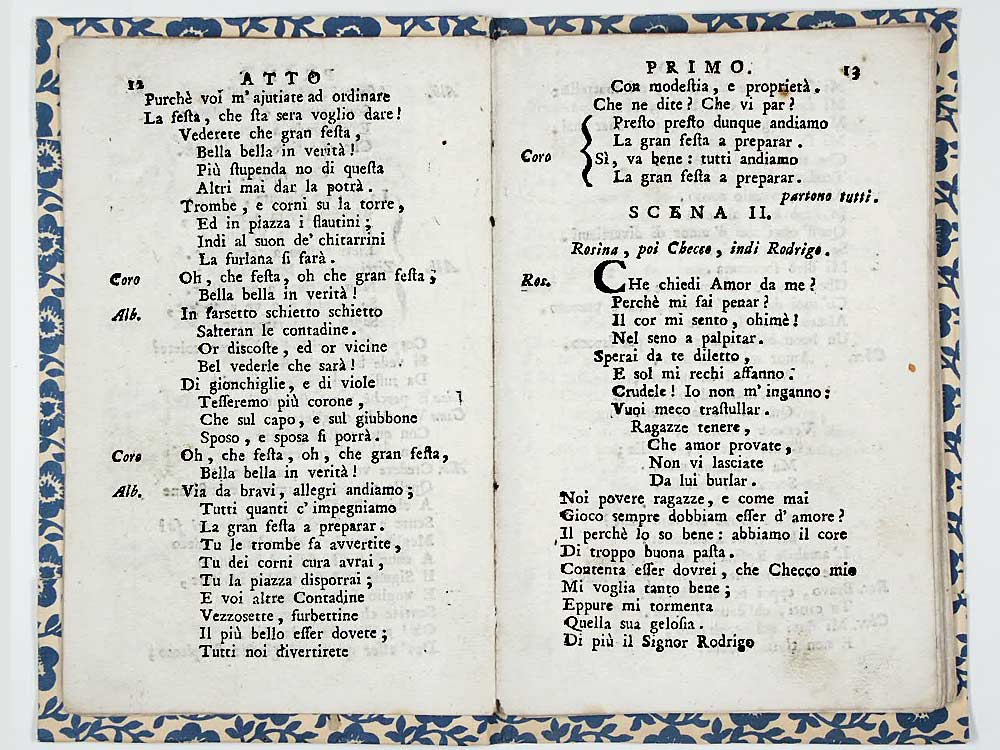 12 ATTO
Purchè voi m' ajutiate ad ordinare
La festa, che sta sera voglio dare!
Vederete che gran festa,
Bella bella in verità!
Più stupenda no di questa
Altri mai dar la potrà.
Trombe, e corni su la torre,
Ed in piazza i flautini;
Indi al suon de' chitarrini
La furlana si farà.
Coro Oh, che festa, oh che gran festa;
Bella bella in verità!
Alb. In farsetto schietto schietto
Salteran le contadine.
Or discoste, ed or vicine
Bel vederle che sarà!
Di gionchiglie, e di viole
Tesseremo più corone,
Che sul capo, e sul giubbone
Sposo, e sposa si porrà.
Coro Oh, che festa, oh, che gran festa,
Bella bella in verità!
Alb. Via da bravi, allegri andiamo;
Tutti quanti c' impegniamo
La gran festa a preparar.
Tu le trombe fa avvertite,
Tu dei corni cura avrai,
Tu la piazza disporrai;
E voi altre Contadine
Vezzosette, furbettine
Il più bello esser dovete;
Tutti noi divertirete
PRIMO. 13
Con modestia, e proprietà.
Che ne dite? Che vi par?
Presto presto dunque andiamo
La gran festa a preparar.
Coro Sì, va bene: tutti andiamo
La gran festa a preparar.
partono tutti.
SCENA II.
Rosina, poi Checco, indi Rodrigo.
Ros. CHe chiedi Amor da me?
Perchè mi fai penar?
Il cor mi sento, ohimè!
Nel seno a palpitar.
Sperai da te diletto,
E sol mi rechi affanno:
Crudele! Io non m' inganno:
Vuoi meco trastullar.
Ragazze tenere,
Che amor provate,
Non vi lasciate
Da lui burlar.
Noi povere ragazze, e come mai
Gioco sempre dobbiam esser d' amore?
Il perchè lo so bene: abbiamo il core
Di troppo buona pasta.
Contenta esser dovrei, che Checco mio
Mi voglia tanto bene;
Eppure mi tormenta
Quella sua gelosia.
Di più il Signor Rodrigo